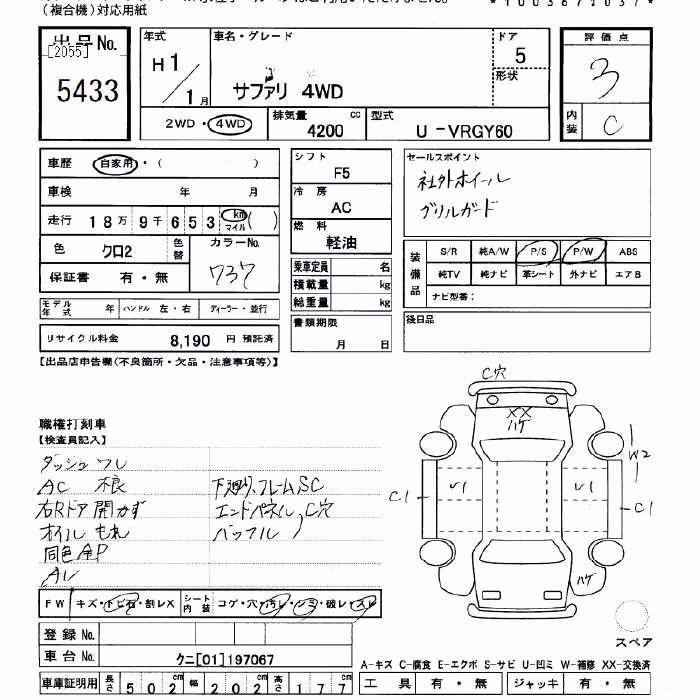 (複合機)対応用紙
*1003672037*
出品No.
[2055]
5433
年式
H1/1月
車名・グレード
サファリ 4WD
ドア
5
形状
評価点
3
内装
C
2WD・4WD
排気量
4200 cc
型式
U-VRGY60
車歴 自家用・( )
車検 年 月
走行 18万9千653 km マイル ( )
色 クロ2 色替
カラーNo.
737
保証書 有・無
モデル年式 年 ハンドル 左・右 ディーラー・並行
リサイクル料金 8,190 円 預託済
シフト
F5
冷房
AC
燃料
軽油
乗車定員 名
積載量 kg
総重量 kg
書類期限
月 日
セールスポイント
社外ホイール
グリルガード
装備品
S/R 純A/W P/S P/W ABS
純TV 純ナビ 革シート 外ナビ エアB
ナビ型番:
後日品
【出品店申告欄(不良箇所・欠品・注意事項等)】
職権打刻車
【検査員記入】
ダッシュワレ
AC 不良
右Rドア開かず
オイルもれ
同色全P
AL
下廻り、フレームSC
エンドパネル、C穴
バッフル
C穴
XX
ハゲ
W2
C1
U1
U1
C1
ハゲ
スペア
FW キズ・トビ石・割レX
シート内装 コゲ・穴・汚レ・シミ・破レ・スレ
登録No.
車台No. クニ[01]197067
車庫証明用 長さ 502cm 幅 202cm 高さ 177cm
A-キズ C-腐食 E-エクボ S-サビ U-凹ミ W-補修 XX-交換済
工具 有・無 ジャッキ 有・無